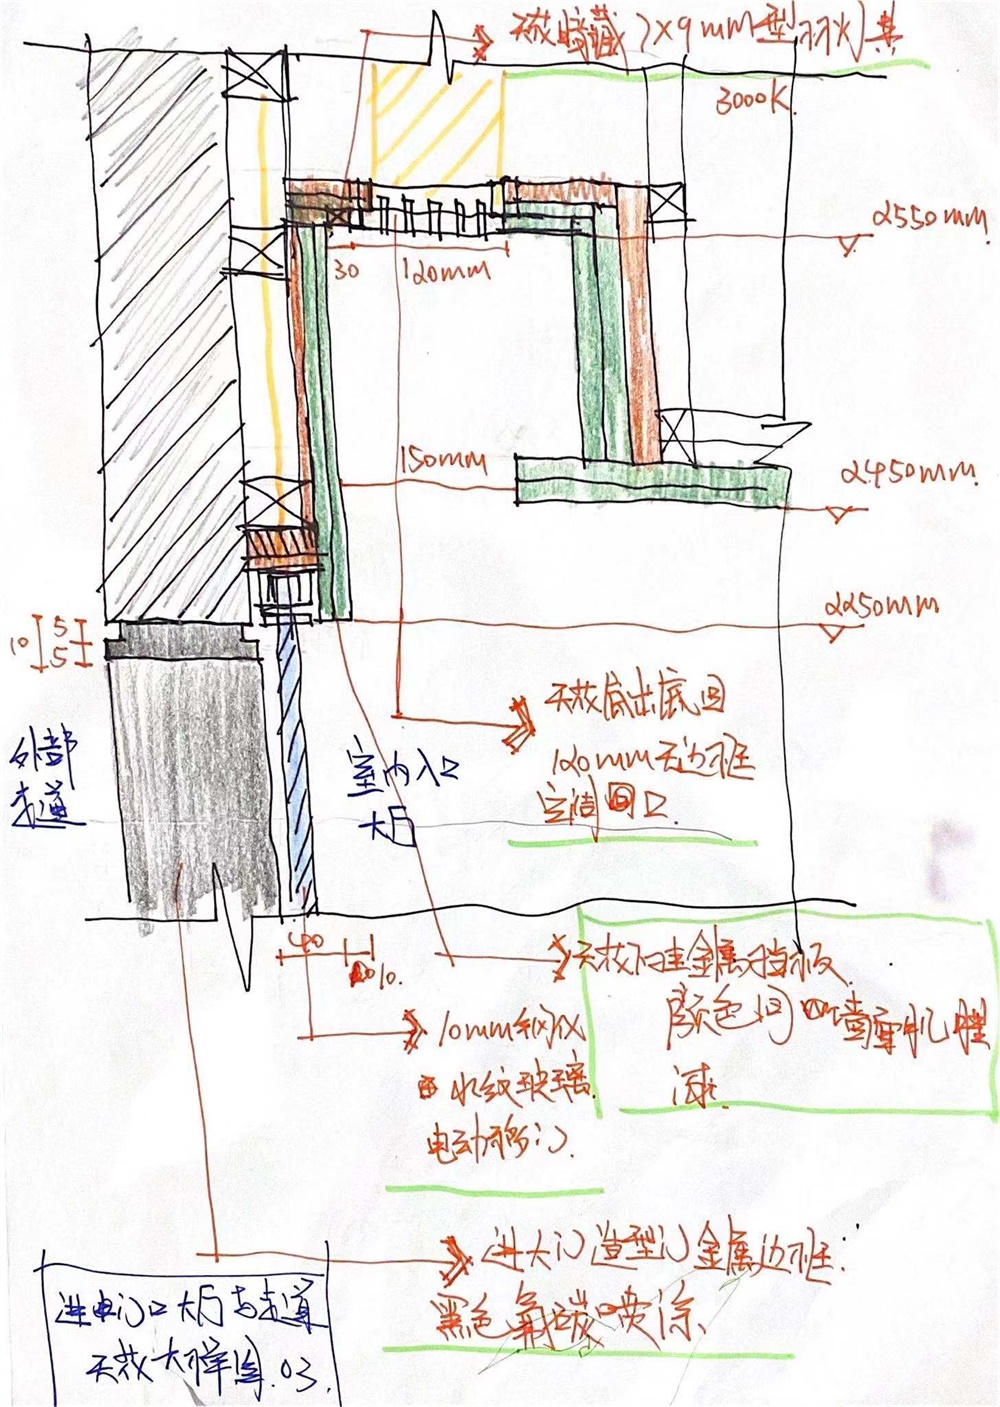 天花暗藏7×9mm型号灯具
3000K
2550mm
30
120mm
150mm
2450mm
2250mm
10
5
5
天花底出底回
120mm无边框
空调回口
外部
走道
室内入口
大厅
40
10
天花下挂金属挡板
颜色同墙面乳胶
漆
10mm钢化
水纹玻璃
电动移门
进大门造型门金属边框
黑色氟碳喷涂
进门口大厅与走道
天花大样图.03.